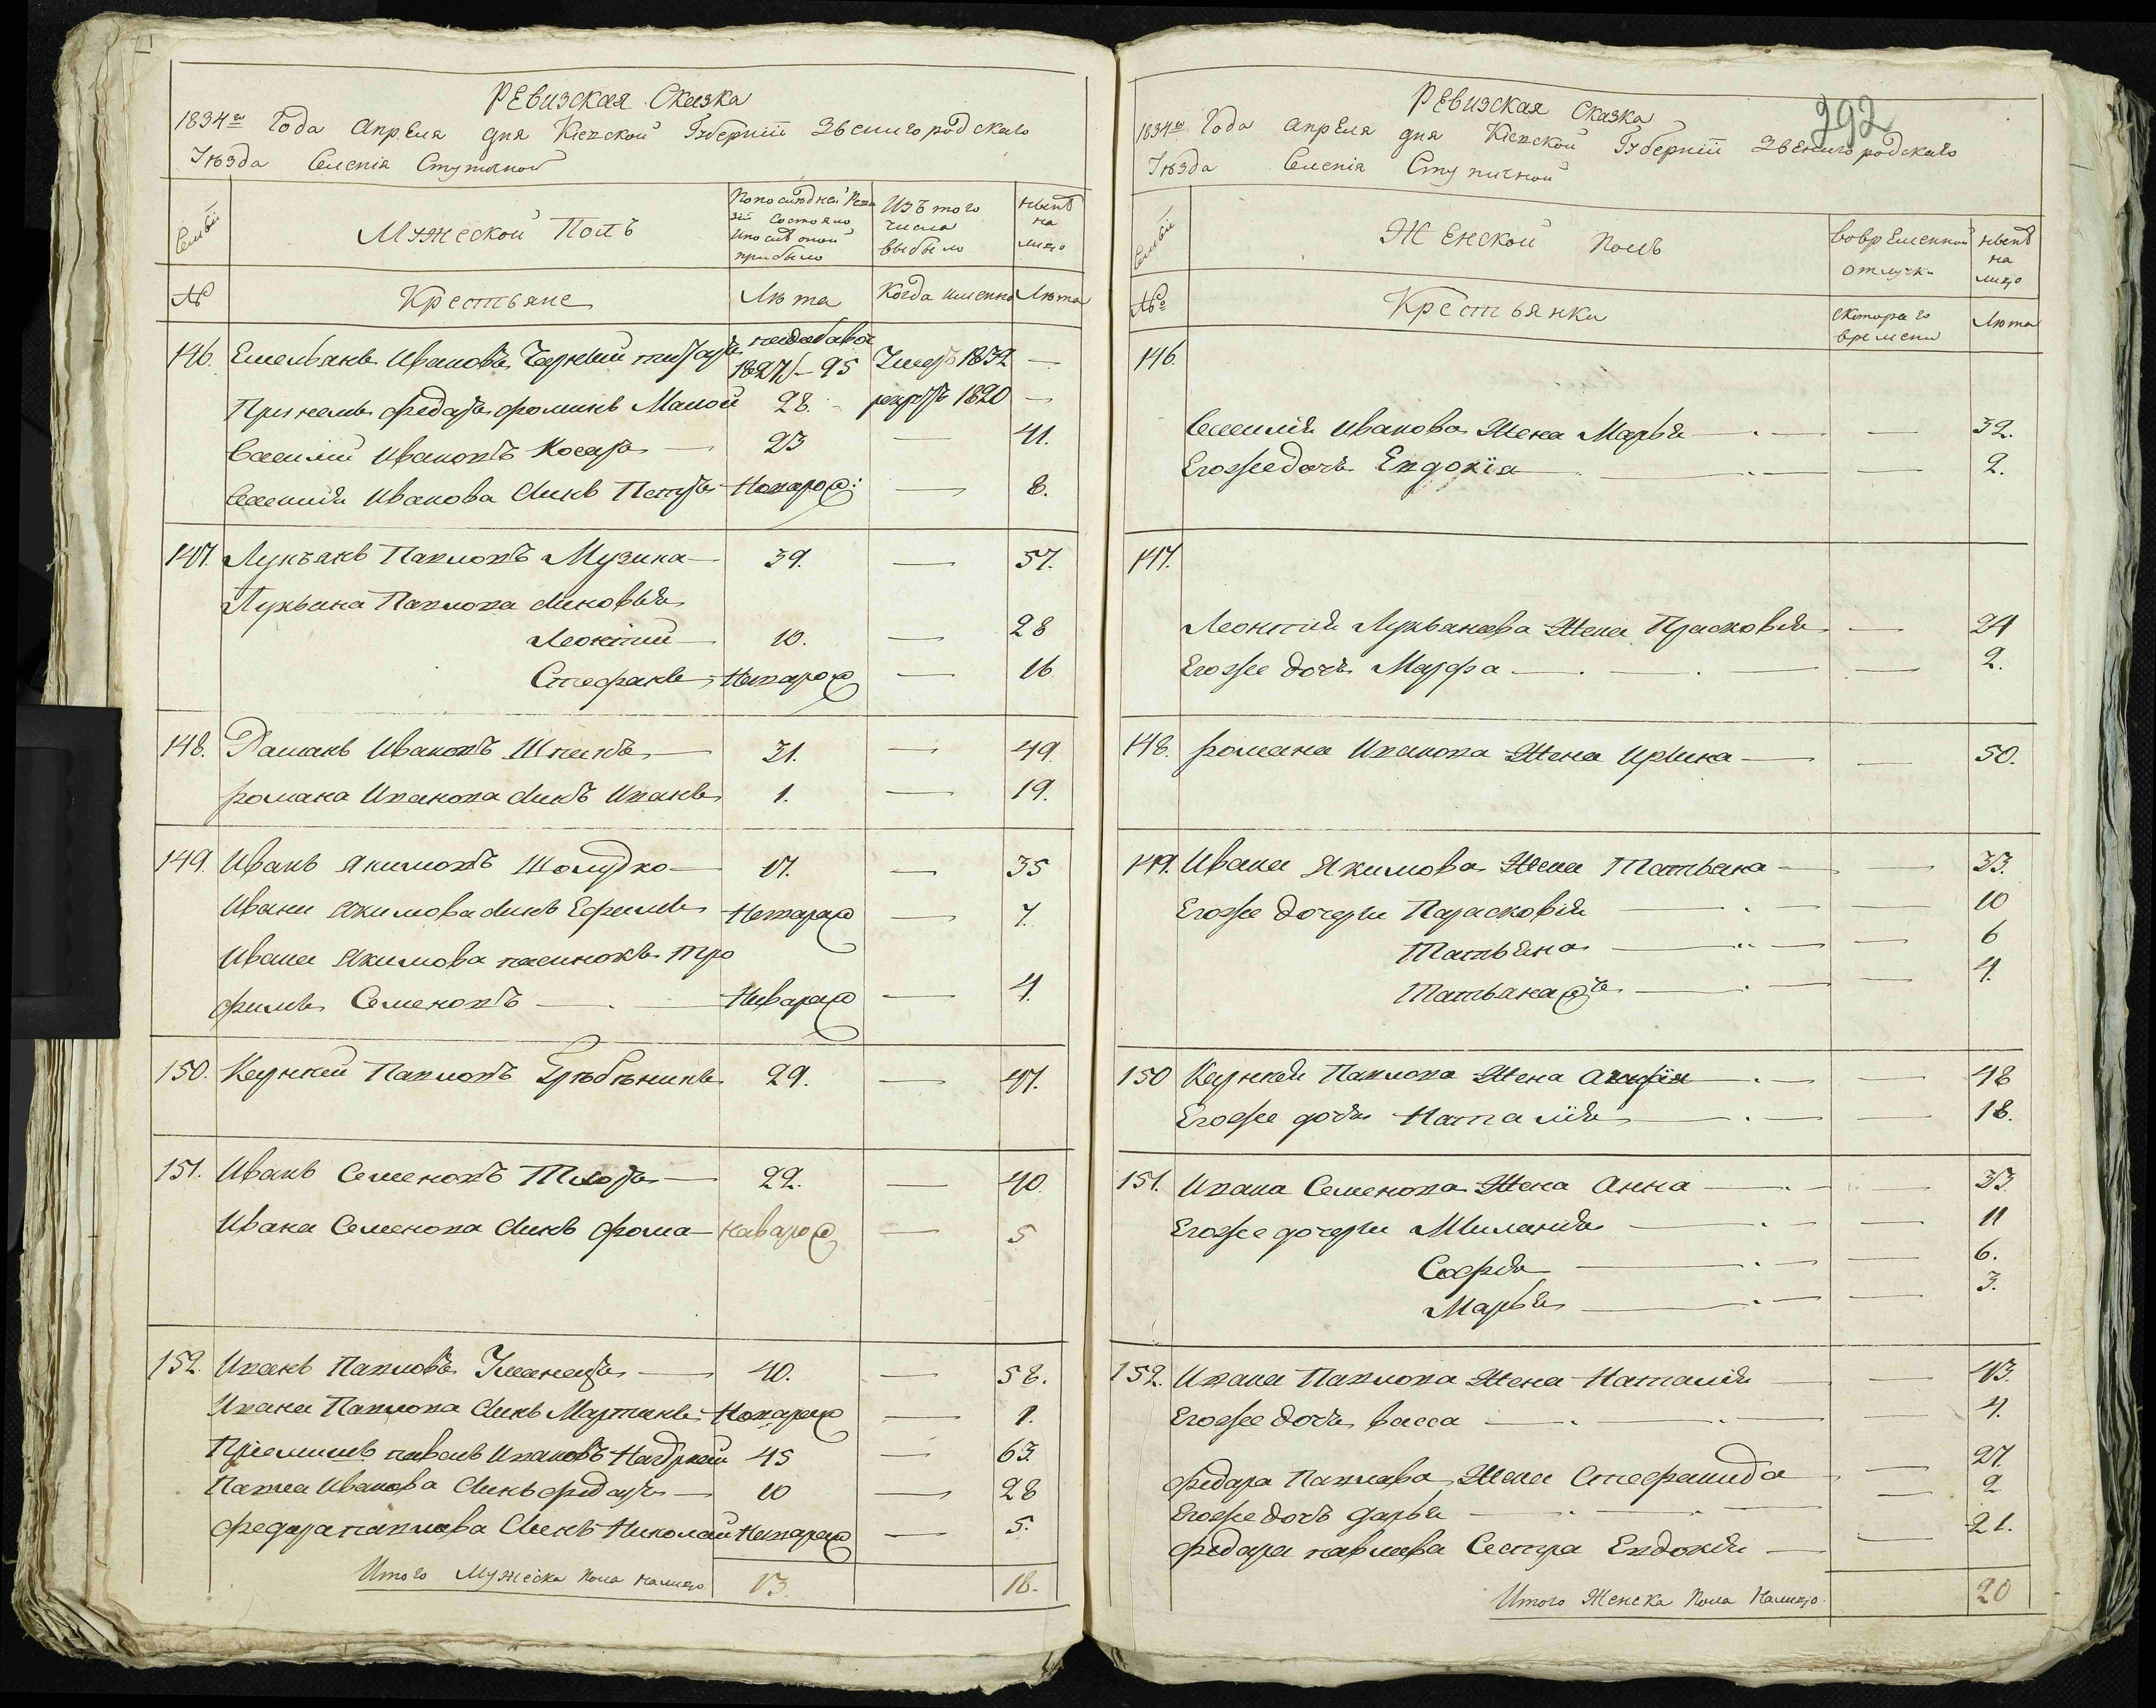 РЕвизская Сказка
1834го Года Апреля дня Кіевской Губерніи Звенигородскаго
Уѣзда Селенія Ступичной
Семьи
Мужеской Полъ
По последней Реви
зіи состояло
и после оной
прибыло
Изъ того
числа
выбыло
Нынѣ
на
лицо
№
Крестьяне
Лѣта
Когда именно
Лѣта
146. Емельянъ Ивановъ 1827/ – 95 Умеръ 1832 —
Федоръ Фоминъ Малой 28. – рекрутъ 1820 —
Василій Ивановъ Косаръ — 23 — 41.
Василія Иванова сынъ Петръ Новорож: — 8.
147. Лукъянъ Павловъ Музика — 39. — 57.
Лукьяна Павлова сыновья
Леонтий 10. — 28
Стефанъ Новорож — 16
148. Раманъ Ивановъ Шпакъ — 31. — 49.
Романа Иванова сынъ Иванъ 1. — 19.
149. Иванъ Якимовъ Шолудко — 17. — 35
Ивана Якимова сынъ Ефимъ Новорож — 7.
Ивана Якимова пасинокъ Тро
фимъ Семеновъ — Новорож — 4.
150. Корней Павловъ Грѣбѣникъ 29. — 47.
151. Иванъ Семеновъ — 22. — 40.
Ивана Семенова сынъ Фома — Новорож — 5
152. Иванъ Павловъ Уманецъ — 40. — 58.
Ивана Павлова сынъ Мартинъ Новорож — 1.
Пріемышъ Павелъ Ивановъ 45 — 63.
Павла Иванова сынъ Федоръ — 10 — 28
Федора Павлова сынъ Николай Новорож — 5.
Итого Мужеска пола налицо 13. 18.
292
РЕвизская Сказка
1834го Года Апреля дня Кіевской Губерніи Звенигородскаго
Уѣзда Селенія Ступичной
Семьи
Женской Полъ
Во временной
отлучки
Нынѣ
на
лицо
№
Крестьянки
С котораго
времени
Лѣта
146.
Василія Иванова Жена Марья — — 32.
Его же дочь Евдокія — — 2.
147.
Леонтия Лукьянова Жена Прасковія — 24
Его же дочь Марфа — — 2.
148. Романа Иванова Жена Ирина — — 50.
149. Ивана Якимова Жена Татьяна — — 33.
Его же дочери Парасковія — — 10
Татьяна — — 6
Татьяна — — 4.
150 Корнея Павлова Жена — — 48
Его же дочь Наталія — — 18.
151. Ивана Семенова Жена Анна — — 33.
Его же дочери Миланія — — 11
Софія — — 6.
Марья — — 3.
152. Ивана Павлова Жена Наталія — — 43.
Его же дочь Васса — — 4.
Федора Павлова Жена Стефанида — 27.
Его же дочъ Дарья — — 2
Федора Павлова Сестра Евдокія — — 21.
Итого Женска пола Налицо. 20